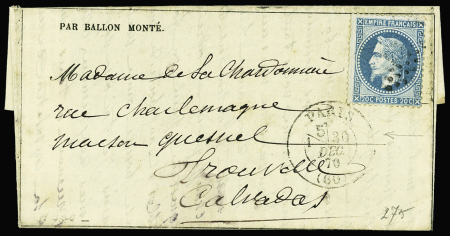 PAR BALLON MONTÉ.
EMPIRE FRANÇAIS
20C POSTES 20C
Madame de La Chardonnière
rue Charlemagne
maison quesnel
Trouville
Calvados
PARIS
5E
30
DEC.
70
(60)
275